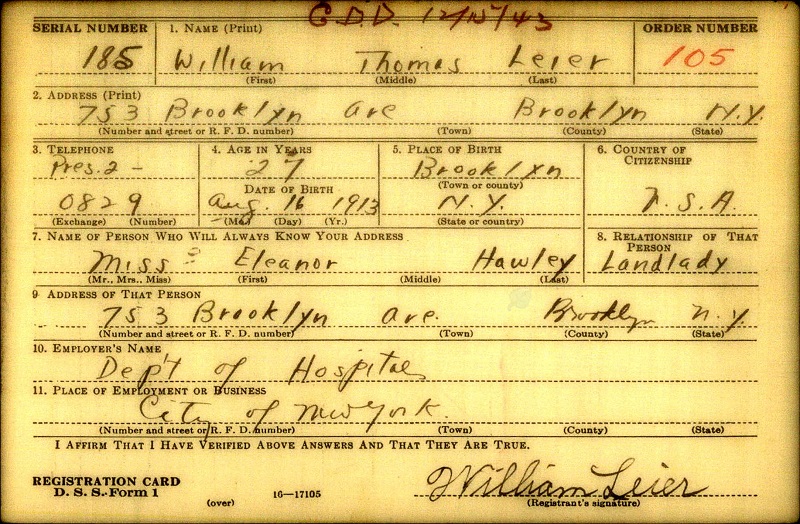 C.D.D. 12/15/43
SERIAL NUMBER 1. NAME (Print) ORDER NUMBER
185 William Thomas Leier 105
(First) (Middle) (Last)
2. ADDRESS (Print)
753 Brooklyn ave Brooklyn N.Y.
(Number and street or R. F. D. number) (Town) (County) (State)
3. TELEPHONE 4. AGE IN YEARS 5. PLACE OF BIRTH 6. COUNTRY OF CITIZENSHIP
Pres. 2 - 27 Brooklyn
DATE OF BIRTH (Town or county)
0829 Aug. 16 1913 N.Y. U.S.A.
(Exchange) (Number) (Mo.) (Day) (Yr.) (State or country)
7. NAME OF PERSON WHO WILL ALWAYS KNOW YOUR ADDRESS 8. RELATIONSHIP OF THAT PERSON
Miss Eleanor Hawley Landlady
(Mr., Mrs., Miss) (First) (Middle) (Last)
9. ADDRESS OF THAT PERSON
753 Brooklyn ave. Brooklyn n.y.
(Number and street or R. F. D. number) (Town) (County) (State)
10. EMPLOYER'S NAME
Dep't of Hospitals
11. PLACE OF EMPLOYMENT OR BUSINESS
City of New York.
(Number and street or R. F. D. number) (Town) (County) (State)
I AFFIRM THAT I HAVE VERIFIED ABOVE ANSWERS AND THAT THEY ARE TRUE.
REGISTRATION CARD
D. S. S. Form 1 William Leier
(over) 16—17105 (Registrant's signature)